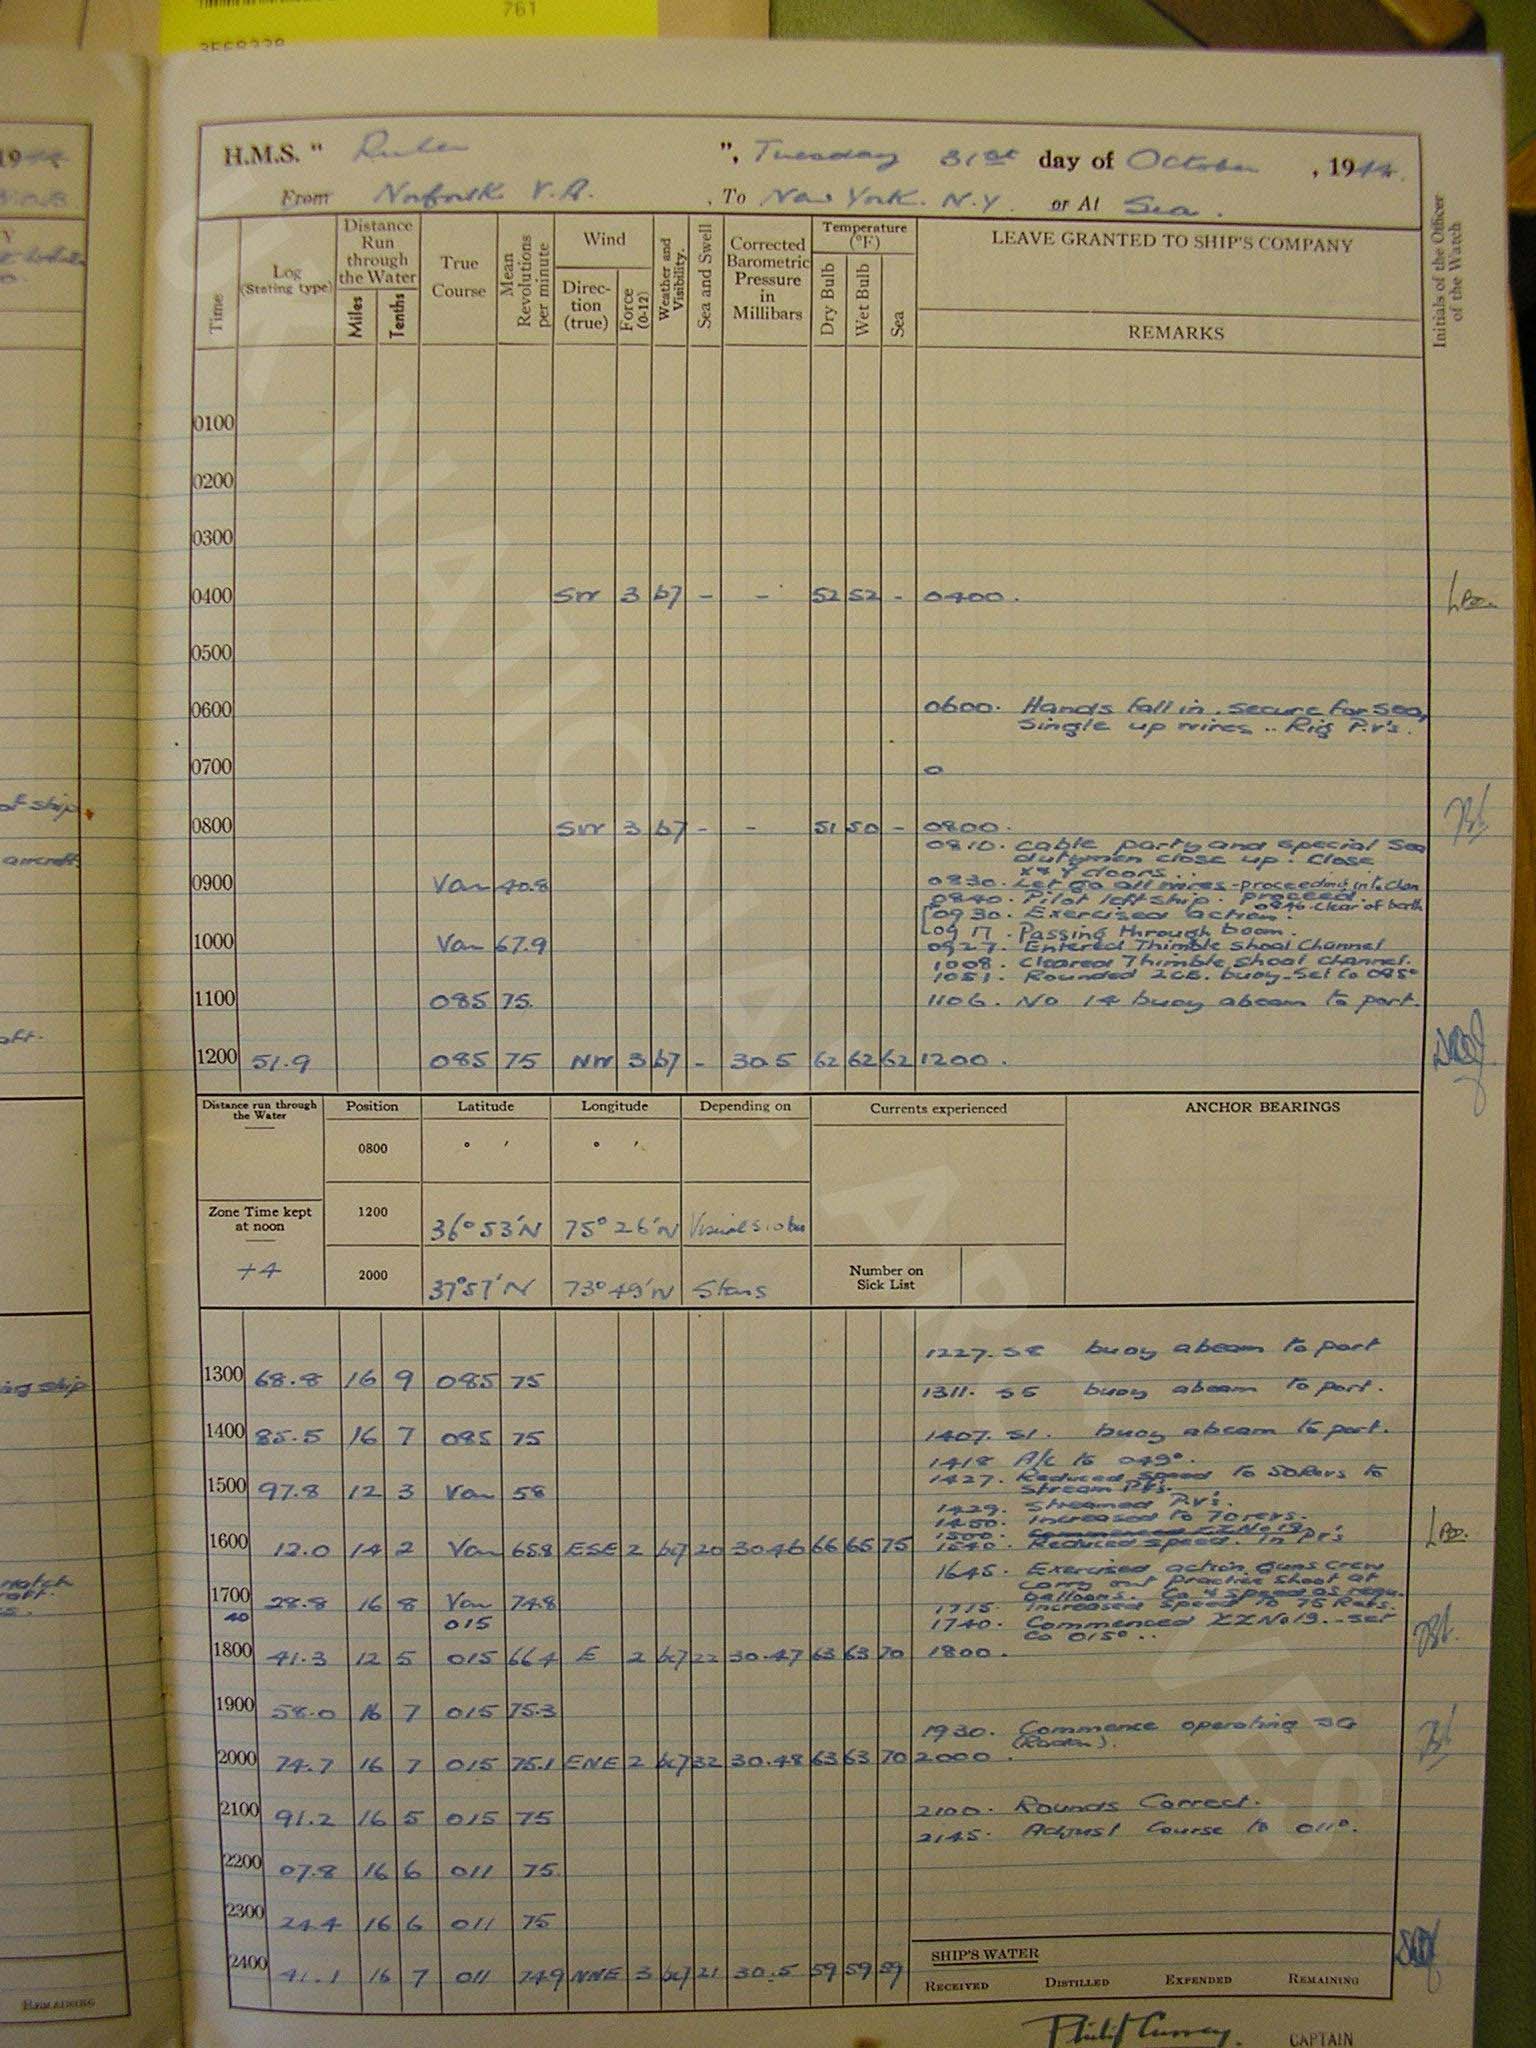 761
3568238
H.M.S. " Ruler ", Tuesday 31st day of October , 1944.
From Norfolk V.A. , To New York. N.Y. or At Sea.
Time
Log (Stating type)
Distance Run through the Water
Miles Tenths
True Course
Mean Revolutions per minute
Wind
Direction (true) Force (0-12)
Weather and Visibility.
Sea and Swell
Corrected Barometric Pressure in Millibars
Temperature (°F)
Dry Bulb Wet Bulb Sea
LEAVE GRANTED TO SHIP'S COMPANY
REMARKS
Initials of the Officer of the Watch
0100
0200
0300
0400 SW 3 b7 - - 52 52 - 0400.
0500
0600 0600. Hands fall in. secure for sea,
Single up wires.. Rig P.V's.
0700
0800 SW 3 b7 - - 51 50 - 0800.
0810. Cable party and special sea
dutymen close up. Close
X & Y doors..
0900 Var 40.8 0830. Let go all wires - proceeding into Chan
0840. Pilot left ship. proceed. 0846. clear of berth
0930. Exercised action.
0917. Passing through boom.
1000 Var 67.9 0927. Entered Thimble Shoal Channel
1008. Cleared Thimble Shoal Channel.
1051. Rounded 2CB. buoy - Set Co 085°
1100 085 75. 1106. No 14 buoy abeam to port.
1200 51.9 085 75 NW 3 b7 - 30.5 62 62 62 1200.
Distance run through the Water
Position Latitude Longitude Depending on Currents experienced ANCHOR BEARINGS
0800 ° ′ ° ′
Zone Time kept at noon
+4
1200 36° 53'N 75° 26'N Visual
2000 37° 57'N 73° 49'N Stars
Number on Sick List
1227. S8 buoy abeam to port
1300 68.8 16 9 085 75
1311. S5 buoy abeam to port.
1400 85.5 16 7 085 75 1407. S1. buoy abeam to port.
1418 A/c to 049°.
1427. Reduced speed to 50 Revs to
stream P.V's.
1500 97.8 12 3 Var 58
1429. Streamed P.V's.
1450. Increased to 70 revs.
1500. Commenced ZZ No 19
1600 12.0 14 2 Var 65.8 ESE 2 bc7 20 30.46 66 65 75 1540. Reduced speed. In PV's
1645. Exercised action. Guns crew
carry out practice shoot at
balloons. Co & speed as requ.
1700 28.8 16 8 Var 74.8 1715. Increased speed to 75 Revs.
40 015 1740. Commenced ZZ No 19. - Set
Co 015°..
1800 41.3 12 5 015 66.4 E 2 bc7 22 30.47 63 63 70 1800.
1900 58.0 16 7 015 75.3
1930. Commence operating SG
(Radar).
2000 74.7 16 7 015 75.1 ENE 2 bc7 32 30.48 63 63 70 2000.
2100 91.2 16 5 015 75 2100. Rounds Correct.
2145. Adjust Course to 011°.
2200 07.8 16 6 011 75
2300 24.4 16 6 011 75
2400 41.1 16 7 011 74.9 NNE 3 bc7 21 30.5 59 59 59
SHIP'S WATER
RECEIVED DISTILLED EXPENDED REMAINING
Philip Currey. CAPTAIN
REMAINING